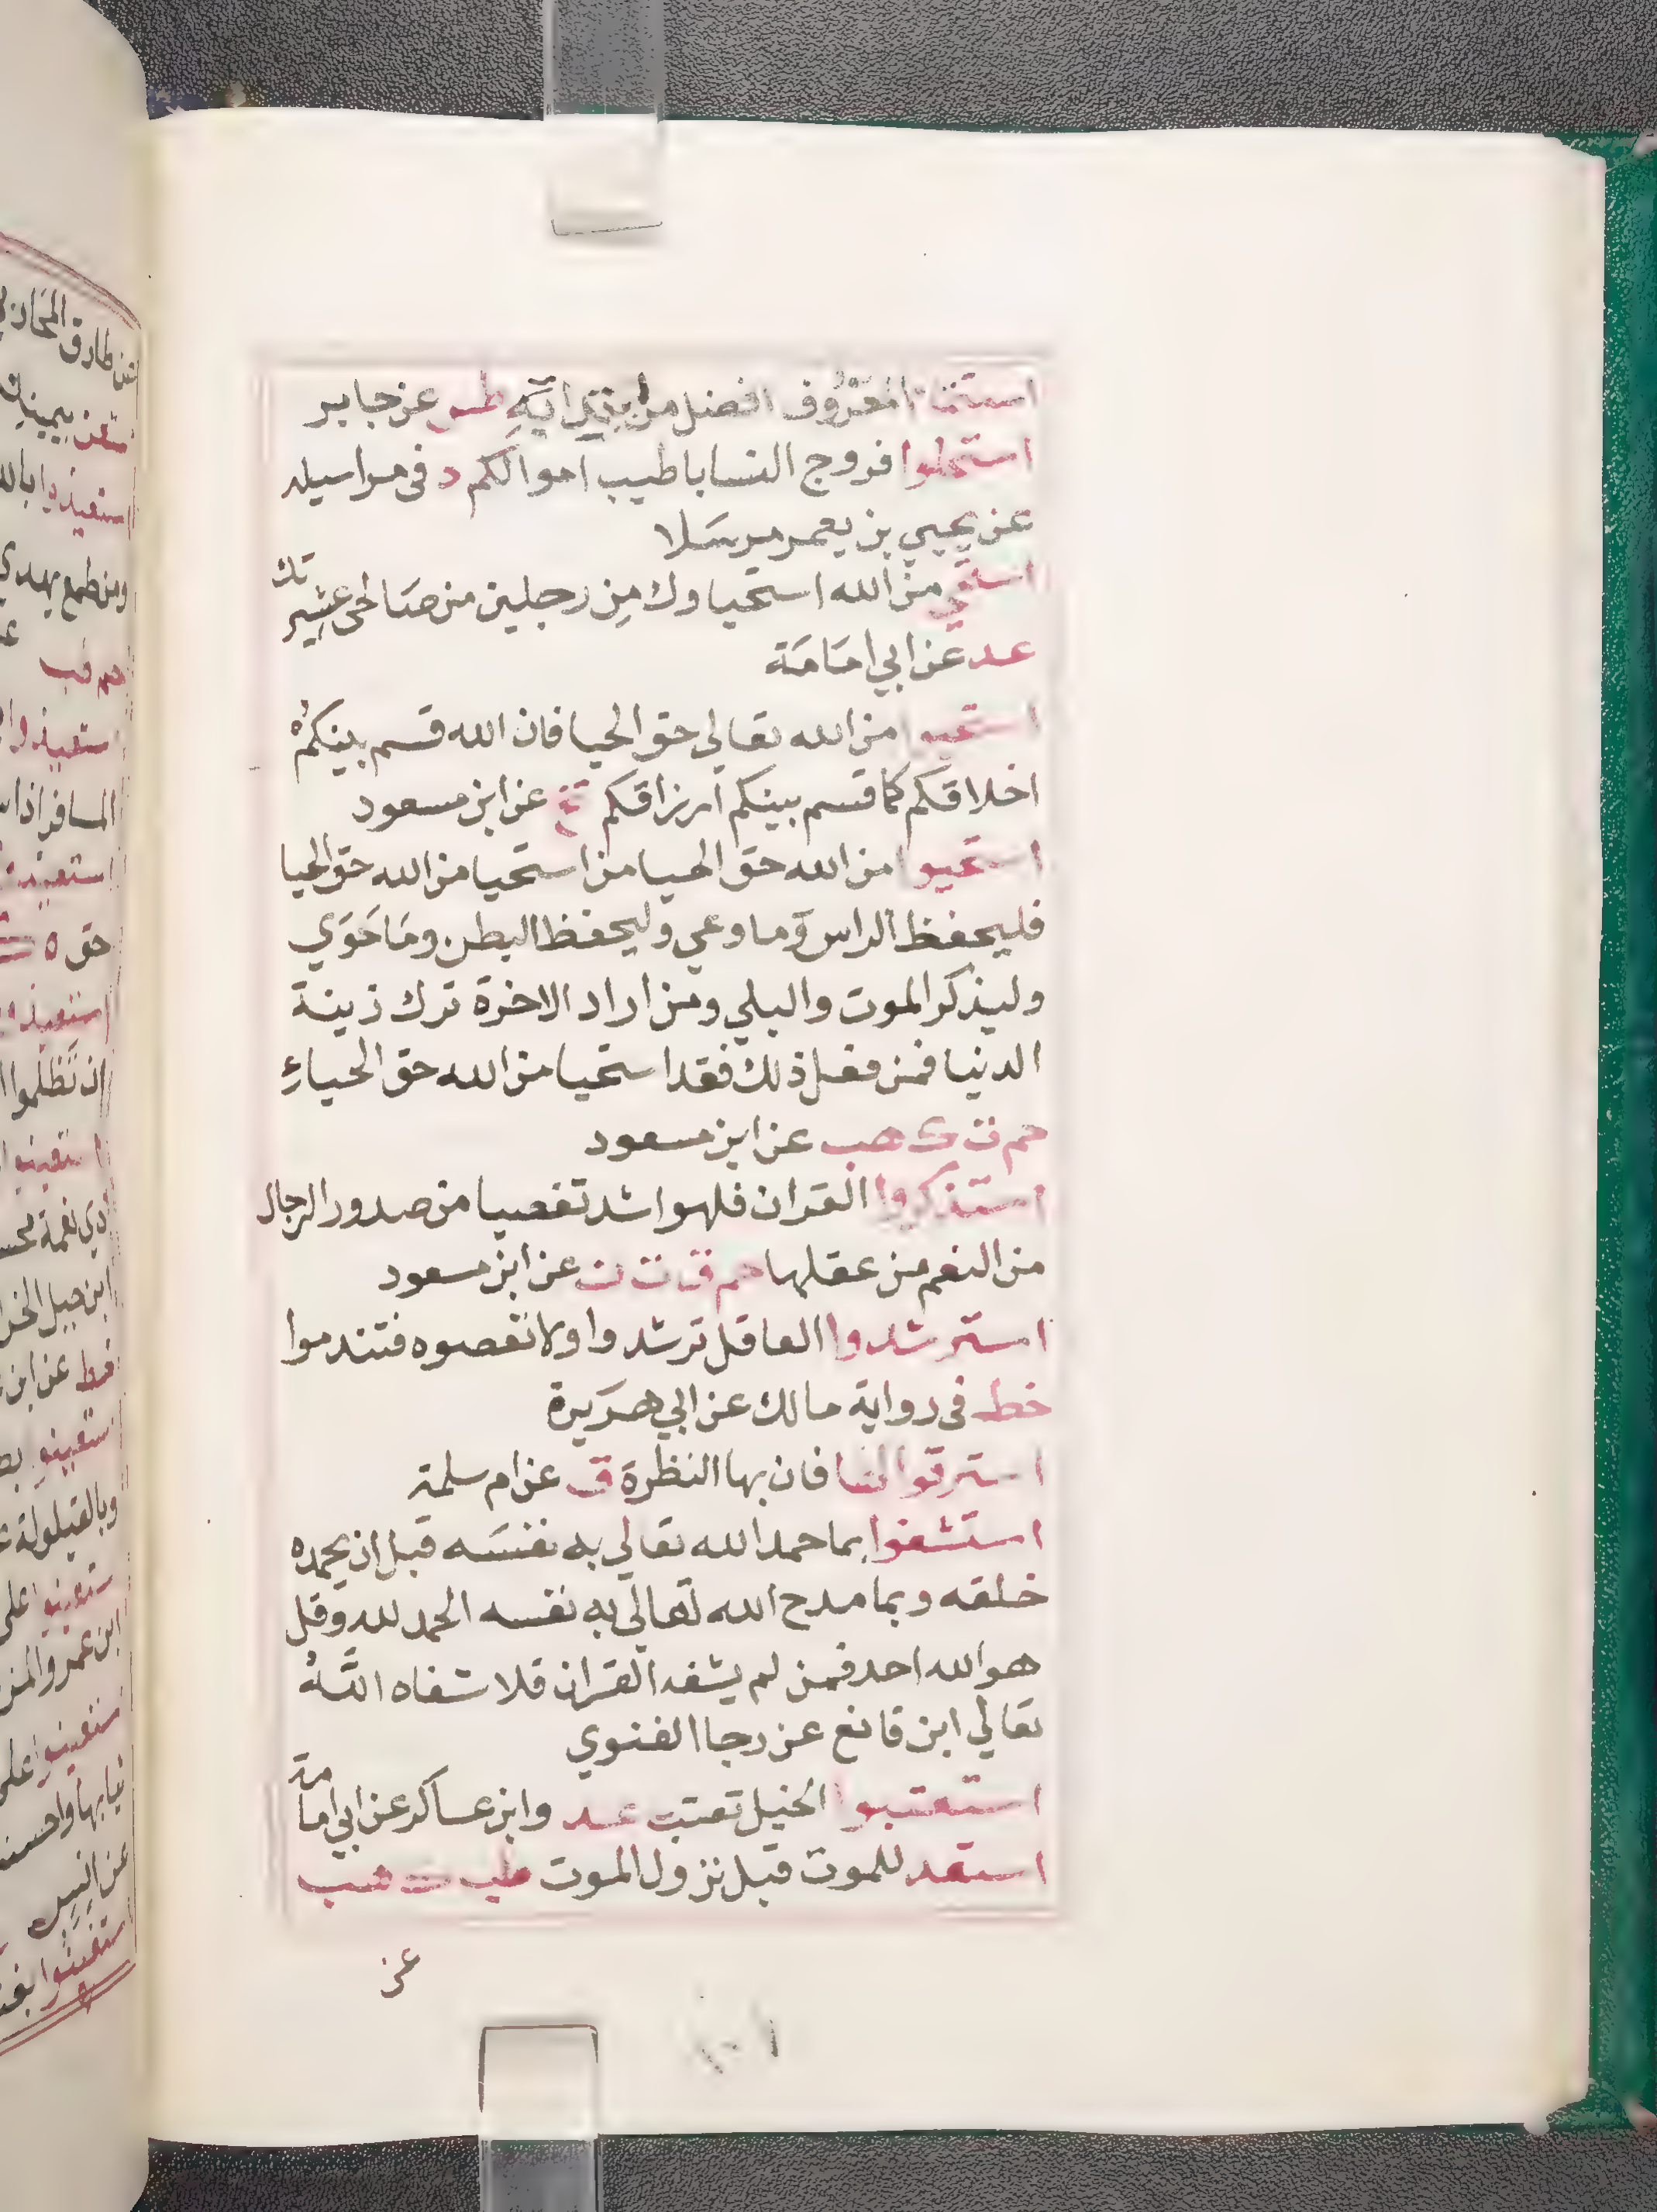 استتمام المعروف افضل من ابتدائه طس عن جابر
استحلوا فروج النسا باطيب اموالكم د في مراسيله
عن يحيي بن يعمر مرسلا
استحي من الله استحياوك من رجلين من صالحي عشيرتك
عد عن ابي امامة
استحيوا من الله تعالي حق الحيا فان الله قسم بينكم
اخلاقكم كما قسم بينكم ارزاقكم تخ عن ابن مسعود
استحيوا من الله حق الحيا من استحيا من الله حق الحيا
فليحفظ الراس وما وعي وليحفظ البطن وما حوي
وليذكر الموت والبلي ومن اراد الاخرة ترك زينة
الدنيا فمن فعل ذلك فقد استحيا من الله حق الحياء
حم ت ك هب عن ابن مسعود
استذكروا القران فلهو اشد تفصيا من صدور الرجال
من النعم من عقلها حم ق ت ن عن ابن مسعود
استرشدوا العاقل ترشدوا ولا تعصوه فتندموا
خط في رواية مالك عن ابي هريرة
استرقوا لها فان بها النظرة ق عن ام سلمة
استشفوا بما حمد الله تعالي به نفسه قبل ان يحمده
خلقه وبما مدح الله تعالي به نفسه الحمد لله وقل
هو الله احد فمن لم يشفه القران فلا شفاه الله
تعالي ابن قانع عن رجا الغنوي
استعتبوا الخيل تعتب عد وابن عساكر عن ابي امامة
استعد للموت قبل نزول الموت طب ك هب
عن